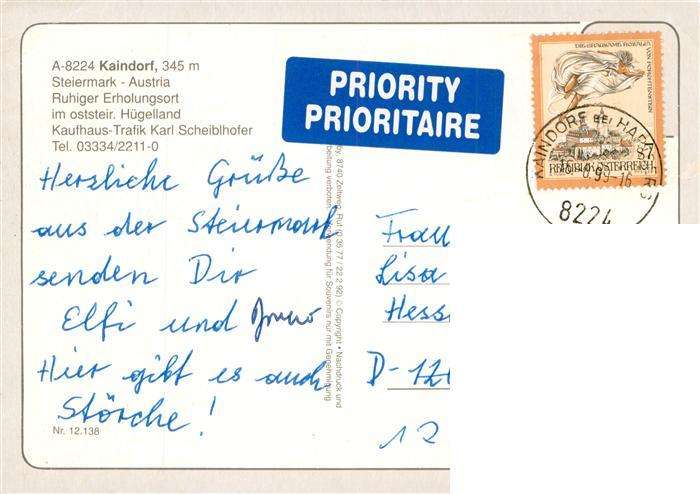 A-8224 Kaindorf, 345 m
Steiermark - Austria
Ruhiger Erholungsort
im oststeir. Hügelland
Kaufhaus-Trafik Karl Scheiblhofer
Tel. 03334/2211-0
PRIORITY
PRIORITAIRE
DIE GRAUSAME ROSALIA
VON FORCHTENSTEIN
REPUBLIK ÖSTERREICH
KAINDORF BEI HAR
8224
Herzliche Grüße
aus der Steiermark
senden Dir
Elfi und Bruno
Hier gibt es auch
Störche!
Nr. 12.138
8740 Zeltweg, Ruf (0 35 77 / 22 2 92) © Copyright • Nachdruck und
für Souvenirs nur mit Genehmigung
Frau
Lisa
Hess
D-12
12